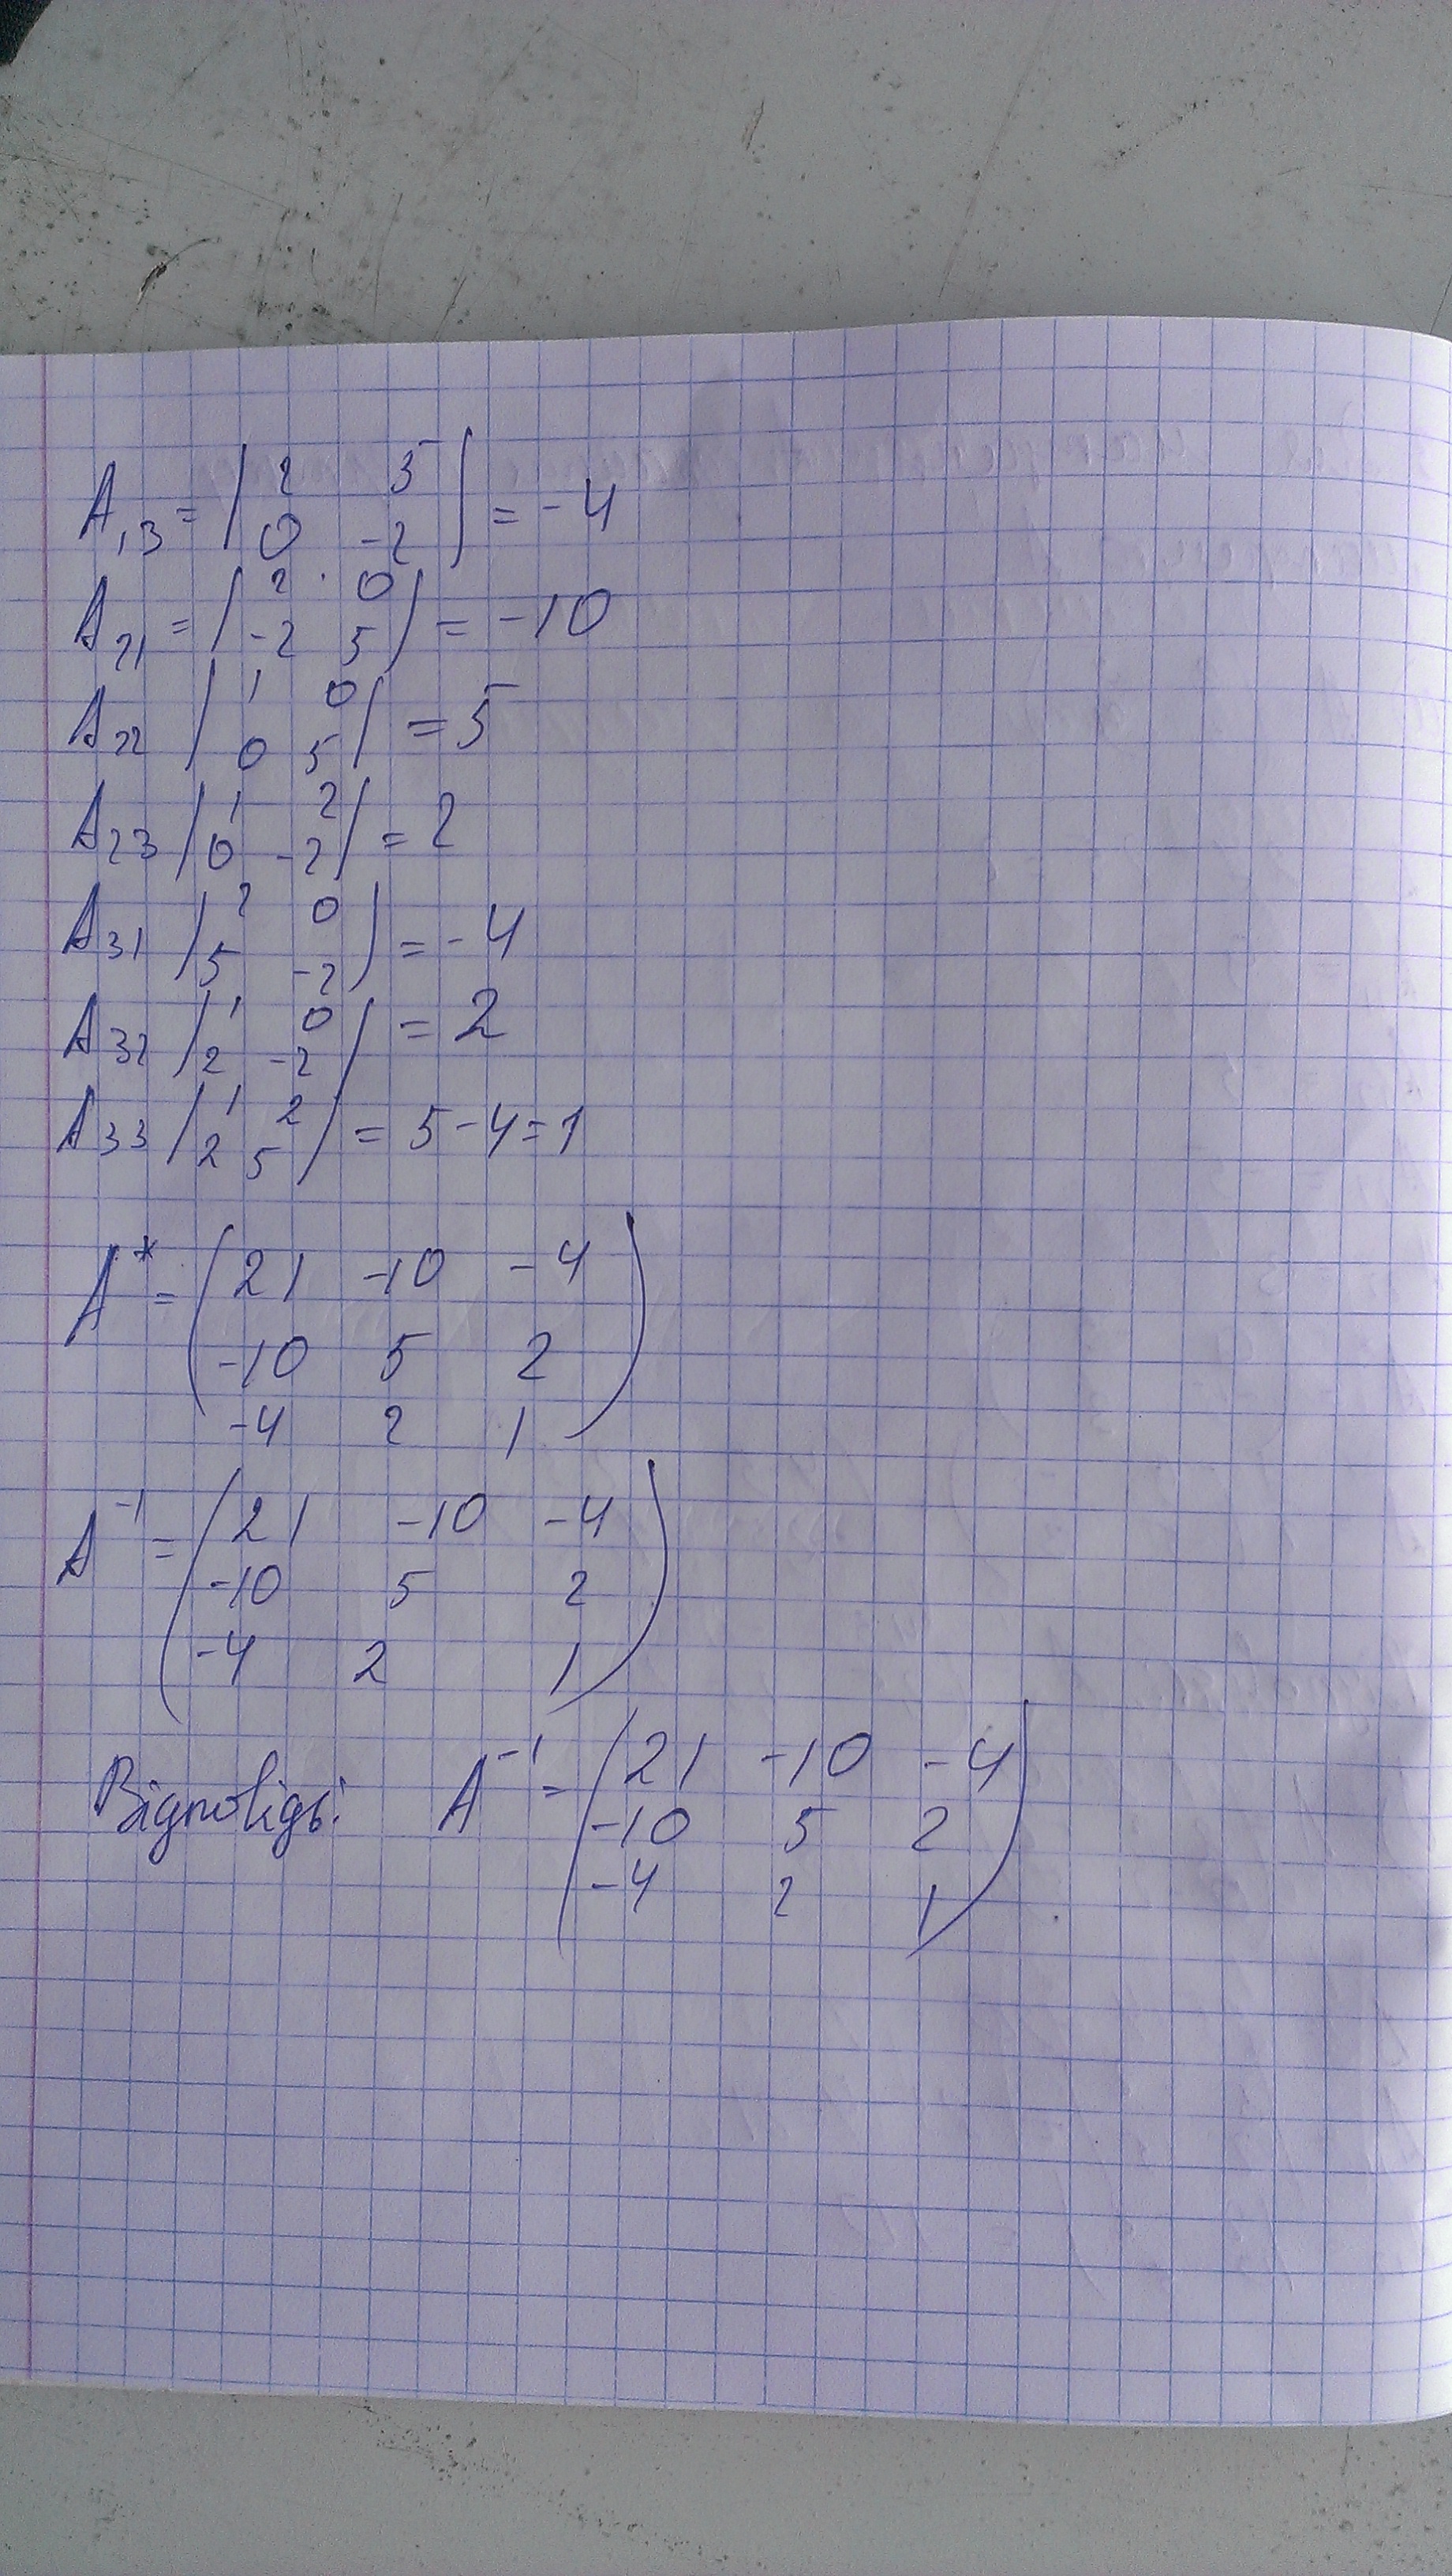 A₁₃ = | 2 5 | = -4
| 0 -2 |
A₂₁ = | 2 0 | = -10
| -2 5 |
A₂₂ | 1 0 | = 5
| 0 5 |
A₂₃ | 1 2 | = 2
| 0 -2 |
A₃₁ | 2 0 | = -4
| 5 -2 |
A₃₂ | 1 0 | = 2
| 2 -2 |
A₃₃ | 1 2 | = 5 - 4 = 1
| 2 5 |
A* = ( 21 -10 -4 )
-10 5 2
-4 2 1
A⁻¹ = ( 21 -10 -4 )
-10 5 2
-4 2 1
Відповідь: A⁻¹ = ( 21 -10 -4 )
-10 5 2
-4 2 1